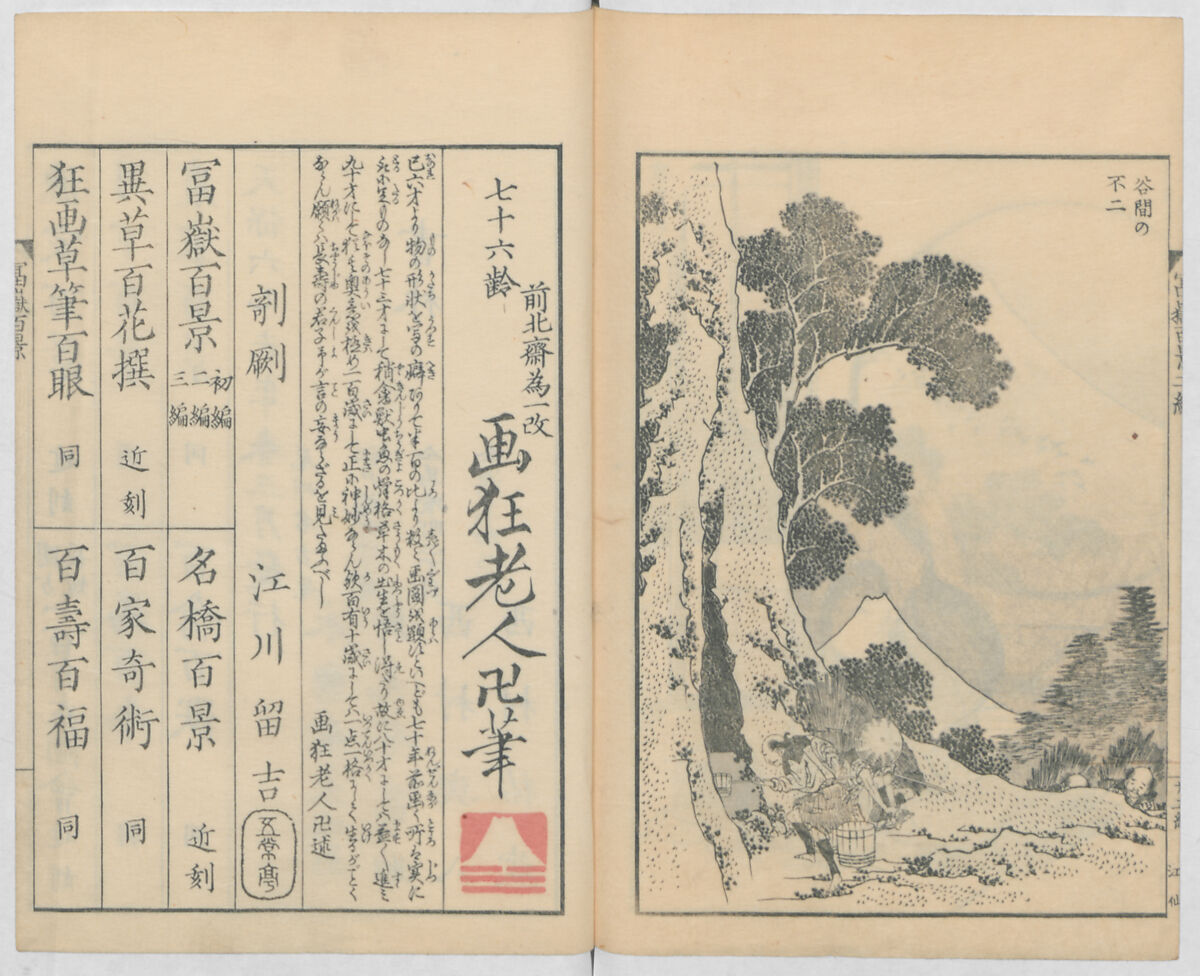 谷間の
不二
富嶽百景二編
江仙
七十六齢
前北斎為一改
画狂老人卍筆
己六才より物の形状を写の癖ありて半百の比より数々画図を顕すといへども七十年前画く所は実に
取に足ものなし七十三才にして稍禽獣虫魚の骨格草木の出生を悟し得たり故に八十才にしては益々進み
九十才にして猶其奥意を極め一百歳にして正に神妙ならん歟百有十歳にしては一点一格にして生るがごとく
ならん願くは長寿の君子予が言の妄ならざるを見たまふべし
画狂老人卍述
剞劂 江川留吉
五常亭
冨嶽百景 初編 二編 三編
名橋百景 近刻
異草百花撰 近刻
百家奇術 同
狂画草筆百眼 同
百壽百福 同
冨嶽百景